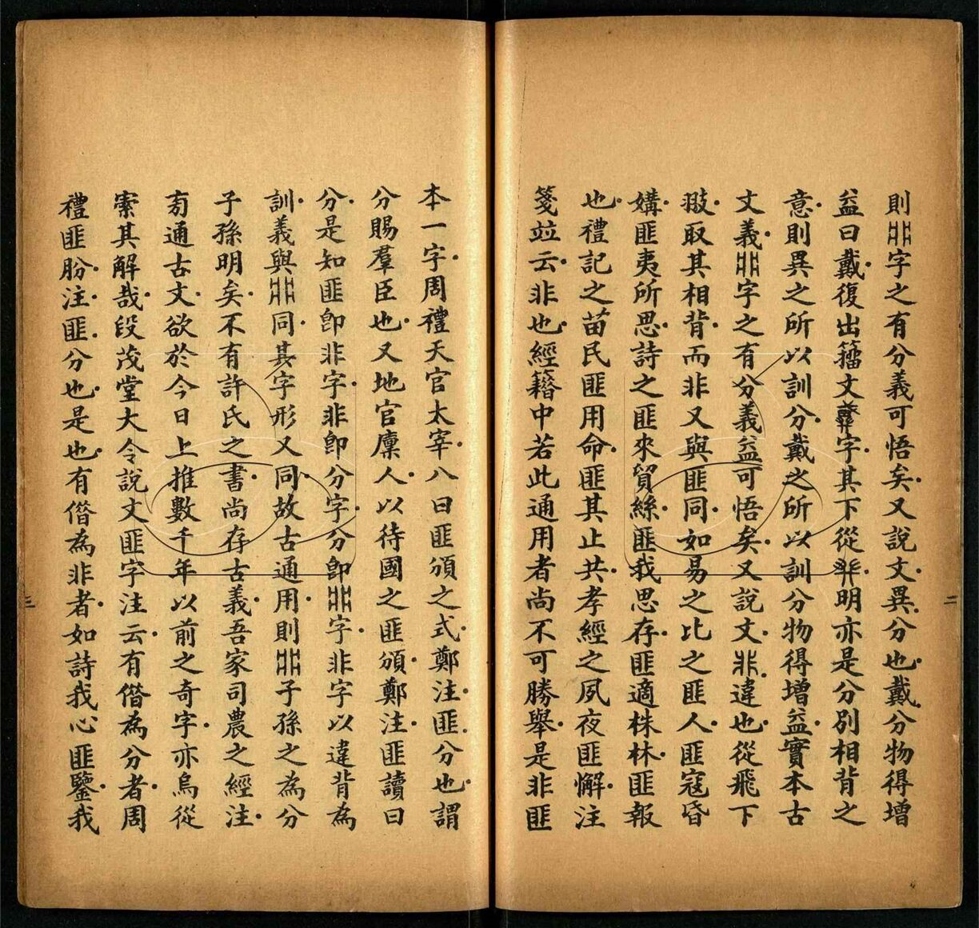 則字之有分義可悟矣又說文異分也戴分物得增
益曰戴復出籒文字其下從明亦是分別相背之
意則異之所以訓分戴之所以訓分物得增益實本古
文義字之有分義益可悟矣又說文非違也從飛下
翄取其相背而非又與匪同如易之比之匪人匪寇昏
媾匪夷所思詩之匪來貿絲匪我思存匪適株林匪報
也禮記之苗民匪用命匪其止共孝經之夙夜匪懈注
箋竝云非也經籍中若此通用者尚不可勝舉是非匪
二
本一字周禮天官太宰八曰匪頒之式鄭注匪分也謂
分賜羣臣也又地官廩人以待國之匪頒鄭注匪讀曰
分是知匪卽非字非卽分字分卽字非字以違背為
訓義與同其字形又同故古通用則子孫之為分
子孫明矣不有許氏之書尚存古義吾家司農之經注
有通古文欲於今日上推數千年以前之奇字亦烏從
索其解哉段茂堂大令說文匪字注云有借為分者周
禮匪頒注匪分也是也有借為非者如詩我心匪鑒我
三